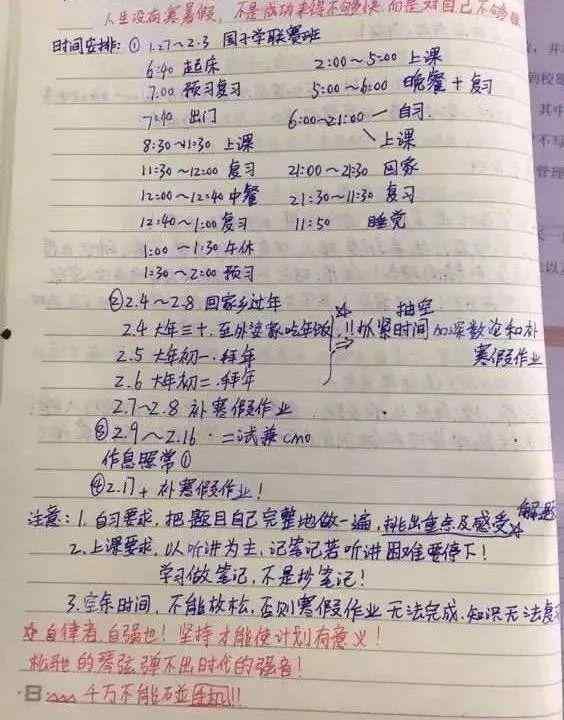 人生没有寒暑假,不是成功来得不够快,而是对自己不够狠
时间安排:① 1.27~2.3 国小学联赛班
6:40 起床 2:00~5:00 上课
7:00 预习复习 5:00~6:00 晚餐+复习
7:40 出门 6:00~21:00 一自习
8:30~11:30 上课 \上课
11:30~12:00 复习 21:00~21:30 回家
12:00~12:40 中餐 21:30~11:30 复习
12:40~1:00 复习 11:50 睡觉
1:00~1:30 午休
1:30~2:00 预习
②2.4~2.8 回家乡过年
2.4 大年三十.至外婆家吃年饭 ☆!! 抓紧时间 抽空 加深数论和补
2.5 大年初一.拜年 寒假作业
2.6 大年初二.拜年
2.7~2.8 补寒假作业
③2.9~2.16.二试兼cmo
作息照常①
④2.17+ 补寒假作业!
注意:1.自习要求,把题目自己完整地做一遍,挑出重点及感受 解题
2.上课要求,以听讲为主,记笔记若听讲困难要停下!
学习做笔记,不是抄笔记!
3.空余时间,不能放松,否则寒假作业无法完成,知识无法复
☆自律者,自强也!坚持才能使计划有意义!
松弛的琴弦弹不出时代的强音!
千万不能碰手机!!